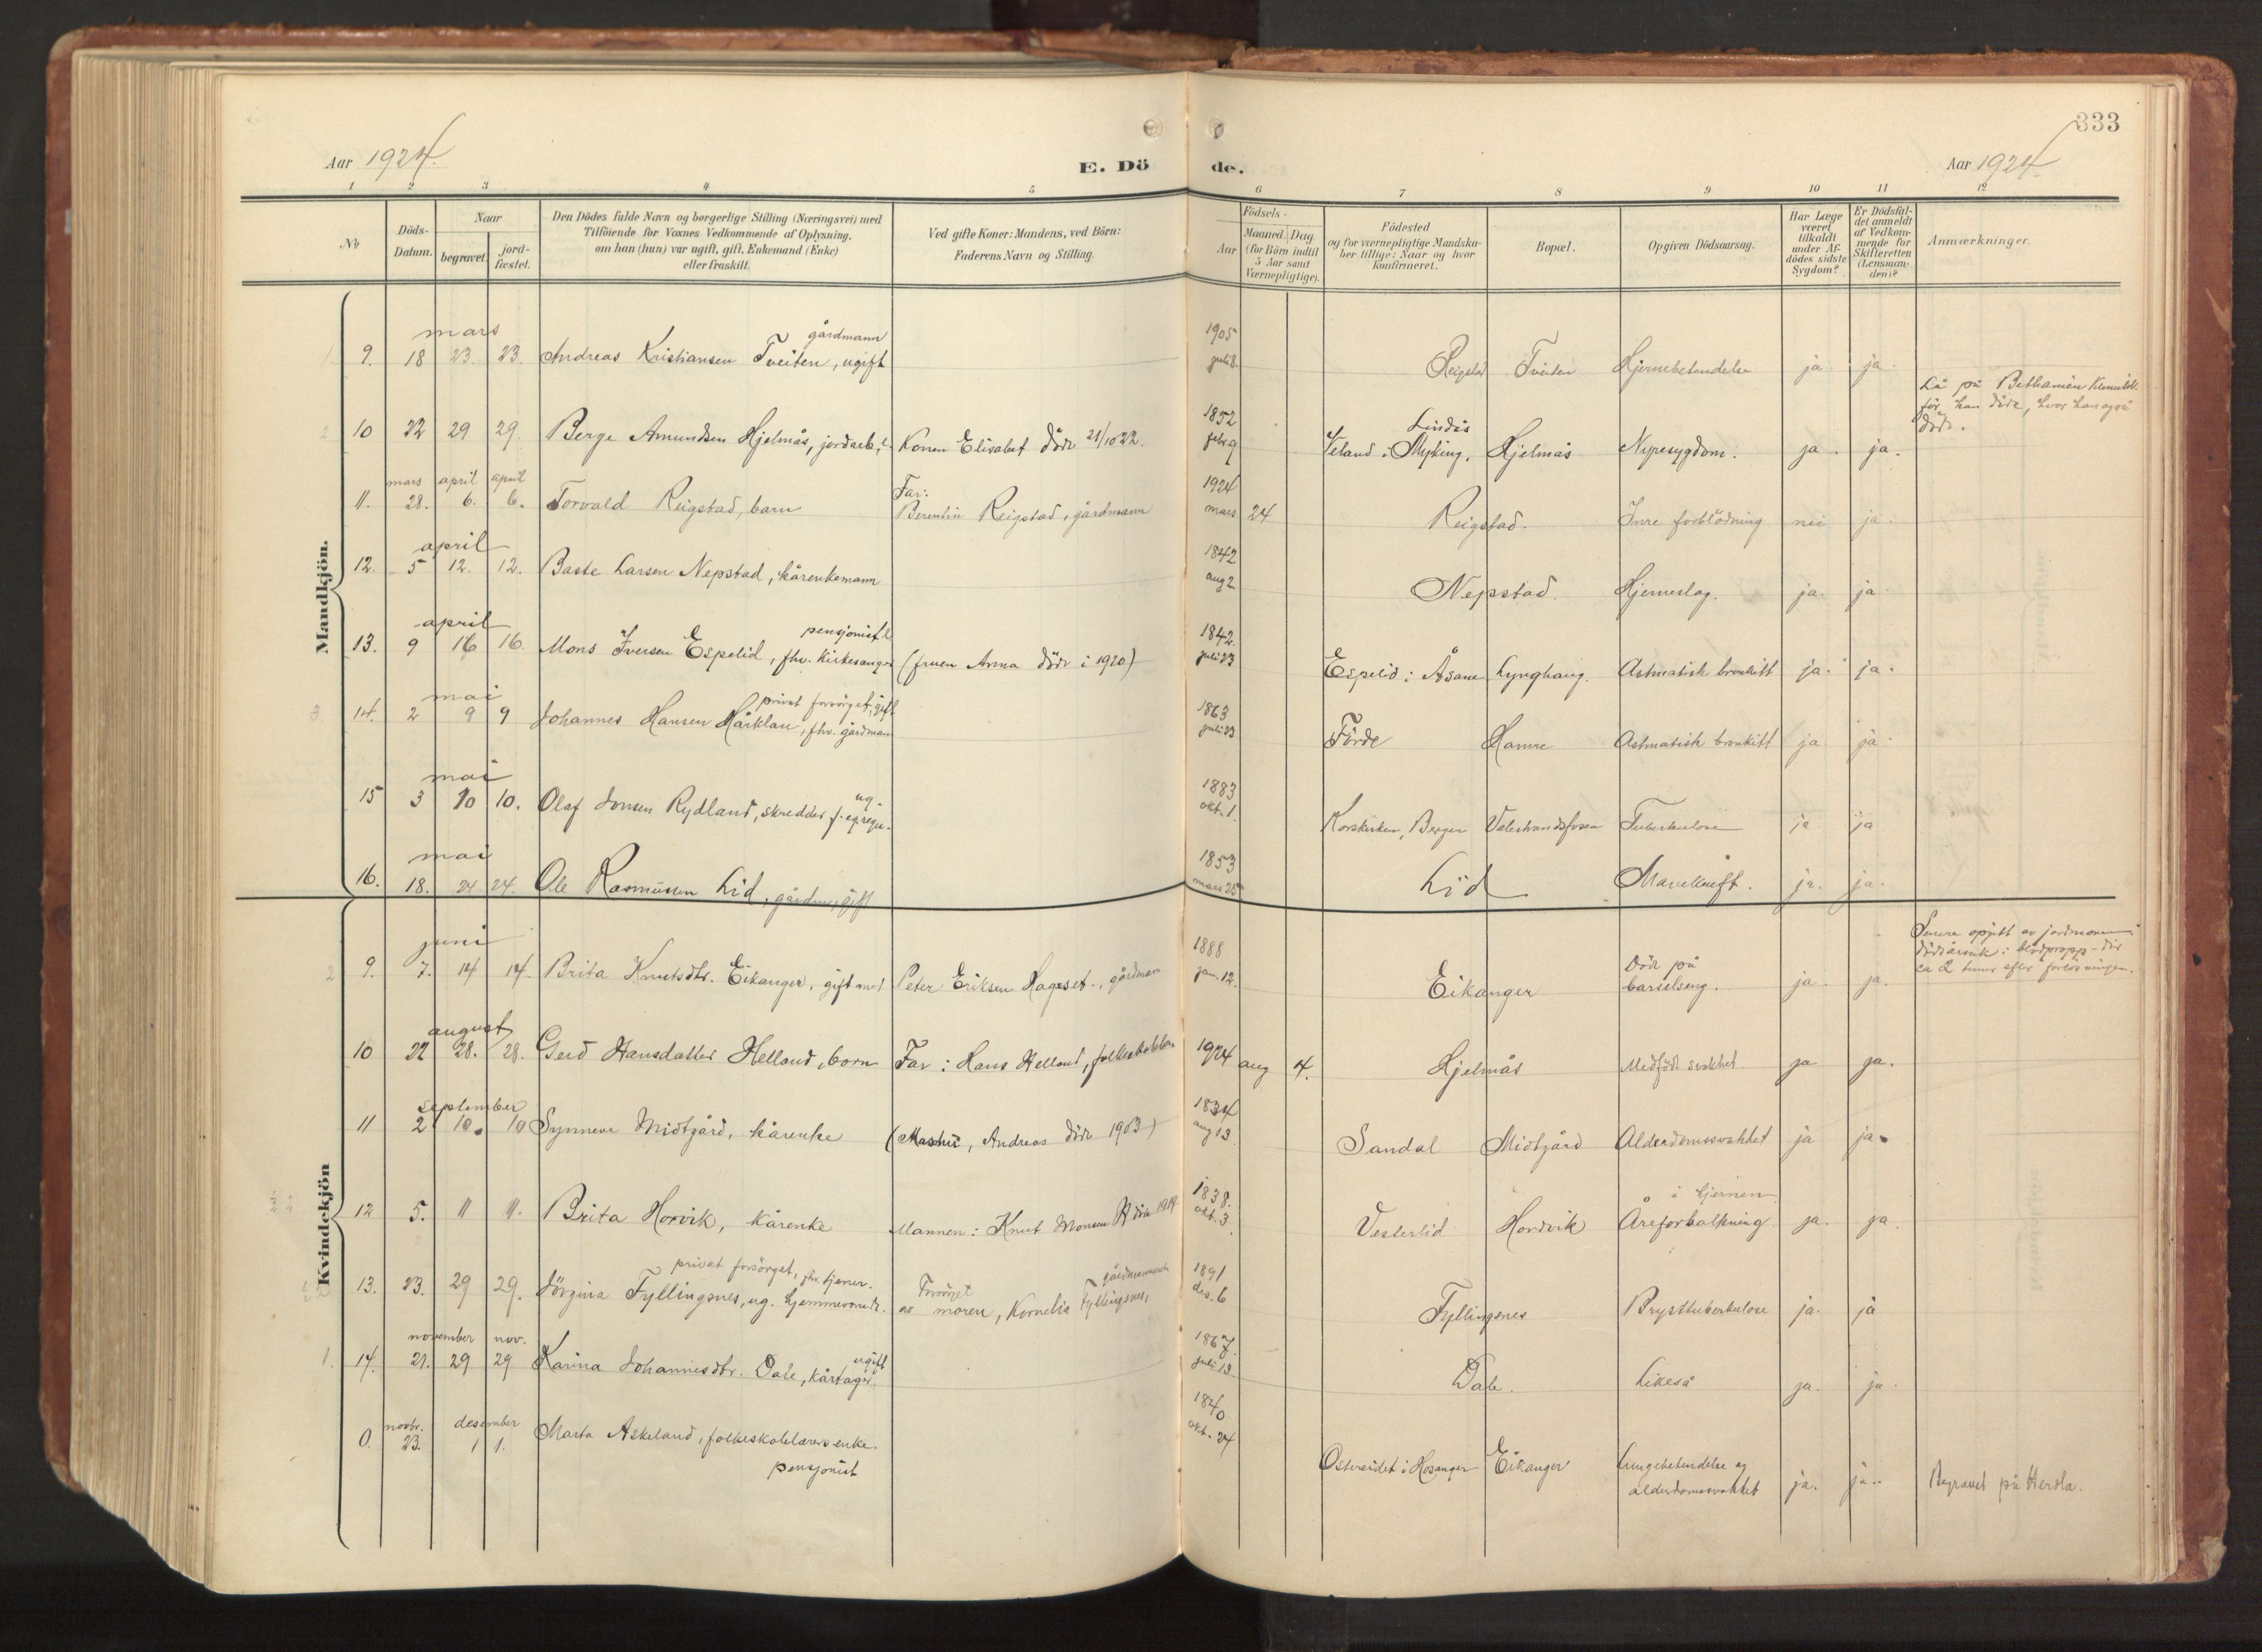 333
Aar 1924.
E. Döde.
Aar 1924
1 2 3 4 5 6 7 8 9 10 11 12
No
Döds-Datum.
Naar
begravet.
jordfæstet.
Den Dödes fulde Navn og borgerlige Stilling (Næringsvei) med
Tilföiende for Voxnes Vedkommende af Oplysning,
om han (hun) var ugift, gift, Enkemand (Enke)
eller fraskilt.
Ved gifte Koner: Mandens, ved Börn:
Faderens Navn og Stilling.
Födsels-
Aar
Maaned. Dag
(for Börn indtil
5 Aar samt
Værnepligtige).
Födested
og for værnepligtige Mandska-
ber tillige: Naar og hvor
konfirmeret.
Bopæl.
Opgiven Dödsaarsag.
Har Læge
været
tilkaldt
under Af-
dödes sidste
Sygdom?
Er Dödsfal-
det anmeldt
af Vedkom-
mende for
Skifteretten
(Lensman-
den)?
Anmærkninger.
Mandkjön.
mars gårdmann 1905
9. 18 23. 23. Andreas Kristiansen Tveiten, ugift juli 8. Reigstad Tveiten Hjernebetendelse ja ja.
Lå på Bethanien
før han døde, hvor han også
døde.
1852 Lindås
10 22 29 29. Berge Amundsen Hjelmås, jordarb., e. Konen Elisabet døde 21/10 22. febr 9 Veland i Myking. Hjelmås Nyresygdom. ja. ja.
mars april april Far: 1924
11. 28. 6. 6. Torvald Reigstad, barn Berentin Reigstad, gårdmann mars 24 Reigstad. Inre forblødning nei ja.
april 1842
12. 5 12. 12. Baste Larsen Nepstad, kårenkemann aug 2 Nepstad. Hjerneslag. ja. ja
april pensjonist e. 1842.
13. 9 16 16. Mons Iversen Espelid, fhv. kirkesanger (fruen Anna døde i 1920) juli 23 Espelid i Åsane Lynghaug. Astmatisk bronkitt ja. ja.
mai privat forsørget, gift 1863
3. 14. 2 9 9 Johannes Hansen Hårklau, fhv. gårdman juli 23 Førde Hamre Astmatisk bronkitt ja ja.
mai ug. 1883
15 3 10 10. Olaf Jonsen Rydland, skredder f. eg. regn. okt. 1. Korskirken, Bergen Valestrandsfossen Tuberkulose ja ja
mai 1853
16. 18. 24 24. Ole Rasmussen Lid, gårdm, gift mars 25 Lid Mavekreft. ja. ja.
Kvindekjön
juni 1888 Død på
2 9. 7. 14 14. Brita Knutsdtr. Eikanger, gift med Peter Eriksen Hageset., gårdman jan. 12. Eikanger barselseng. ja. ja.
Senere opgitt av jordmoren
dødsårsak: blodpropp - dør
ca 2 timer efter forløsningen.
august
10 22 28. 28. Gerd Hansdatter Helland, born Far: Hans Helland, 1924 aug 4. Hjelmås Medfødt svakhet. ja ja.
september 1834
11 2 10. 10 Synneve Midtgård, kårenke (Andreas døde 1903) aug 13. Sandal Midtgård Alderdomssvakhet ja ja.
1838. i hjernen.
12 5. 11 11. Brita Horvik, kårenke Mannen: Knut Monsen H døde 1914 okt. 3 Vesterlid Hordvik Åreforkalkning ja. ja.
privat forsørget, fhv. tjener. Forsørget 1891
13. 23. 29 29. Jörgina Fyllingsnes, ug. hjemmevær. av moren, Kornelia Fyllingsnes, des. 6 Fyllingsnes Brysttuberkulose ja. ja
november nov. ugift 1867.
1. 14. 21. 29 29 Karina Johannesdtr. Dale, kårtager, juli 13. Dale. Likeså ja. ja.
novbr. desember 1840
0. 23. 1 1. Marta Askeland, folkeskolelærers enke. okt. 24 Ostereidet i Hosanger Eikanger Lungebetendelse og
pensjonist alderdomssvakhet ja. ja. Begravet på Herdla.